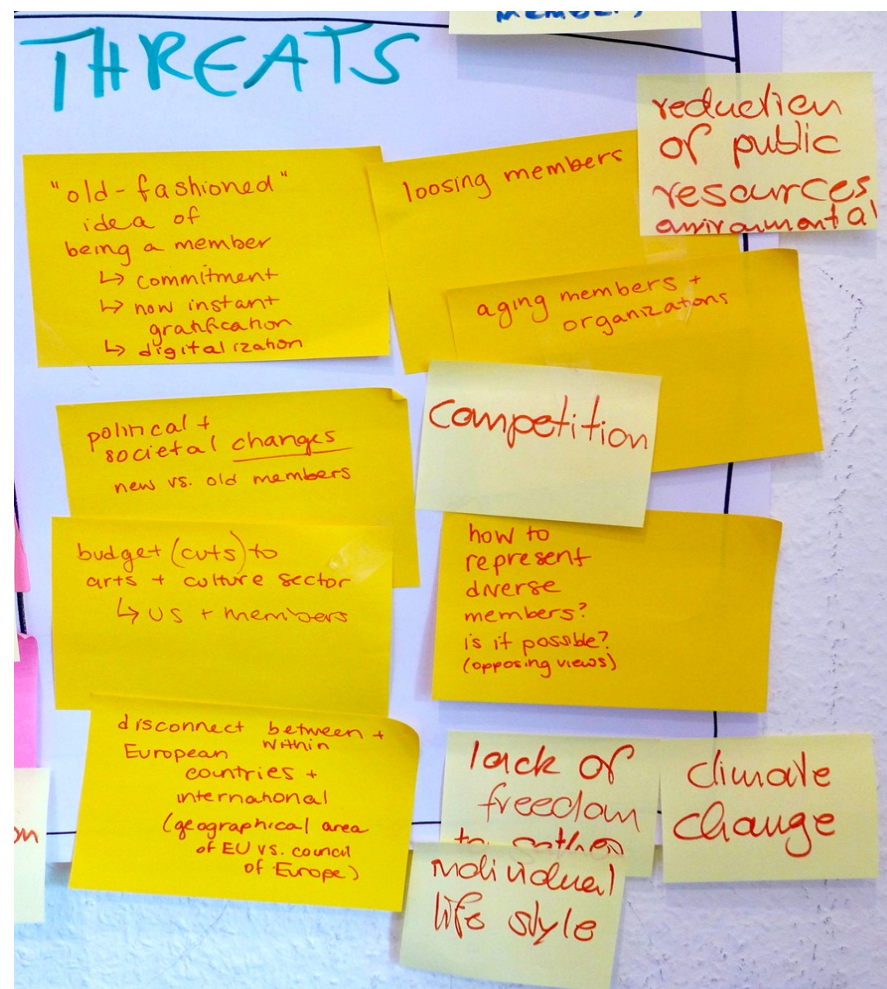 members
THREATS
"old-fashioned"
idea of
being a member
↳ commitment
↳ now instant
gratification
↳ digitalization
loosing members
reduction
of public
resources
environmental
aging members +
organizations
political +
societal changes
new vs. old members
competition
budget (cuts) to
arts + culture sector
↳ us + members
how to
represent
diverse
members?
is it possible?
(opposing views)
disconnect between +
within
European
countries +
international
(geographical area
of EU vs. council
of Europe)
lack of
freedom
to gather
climate
change
individual
life style